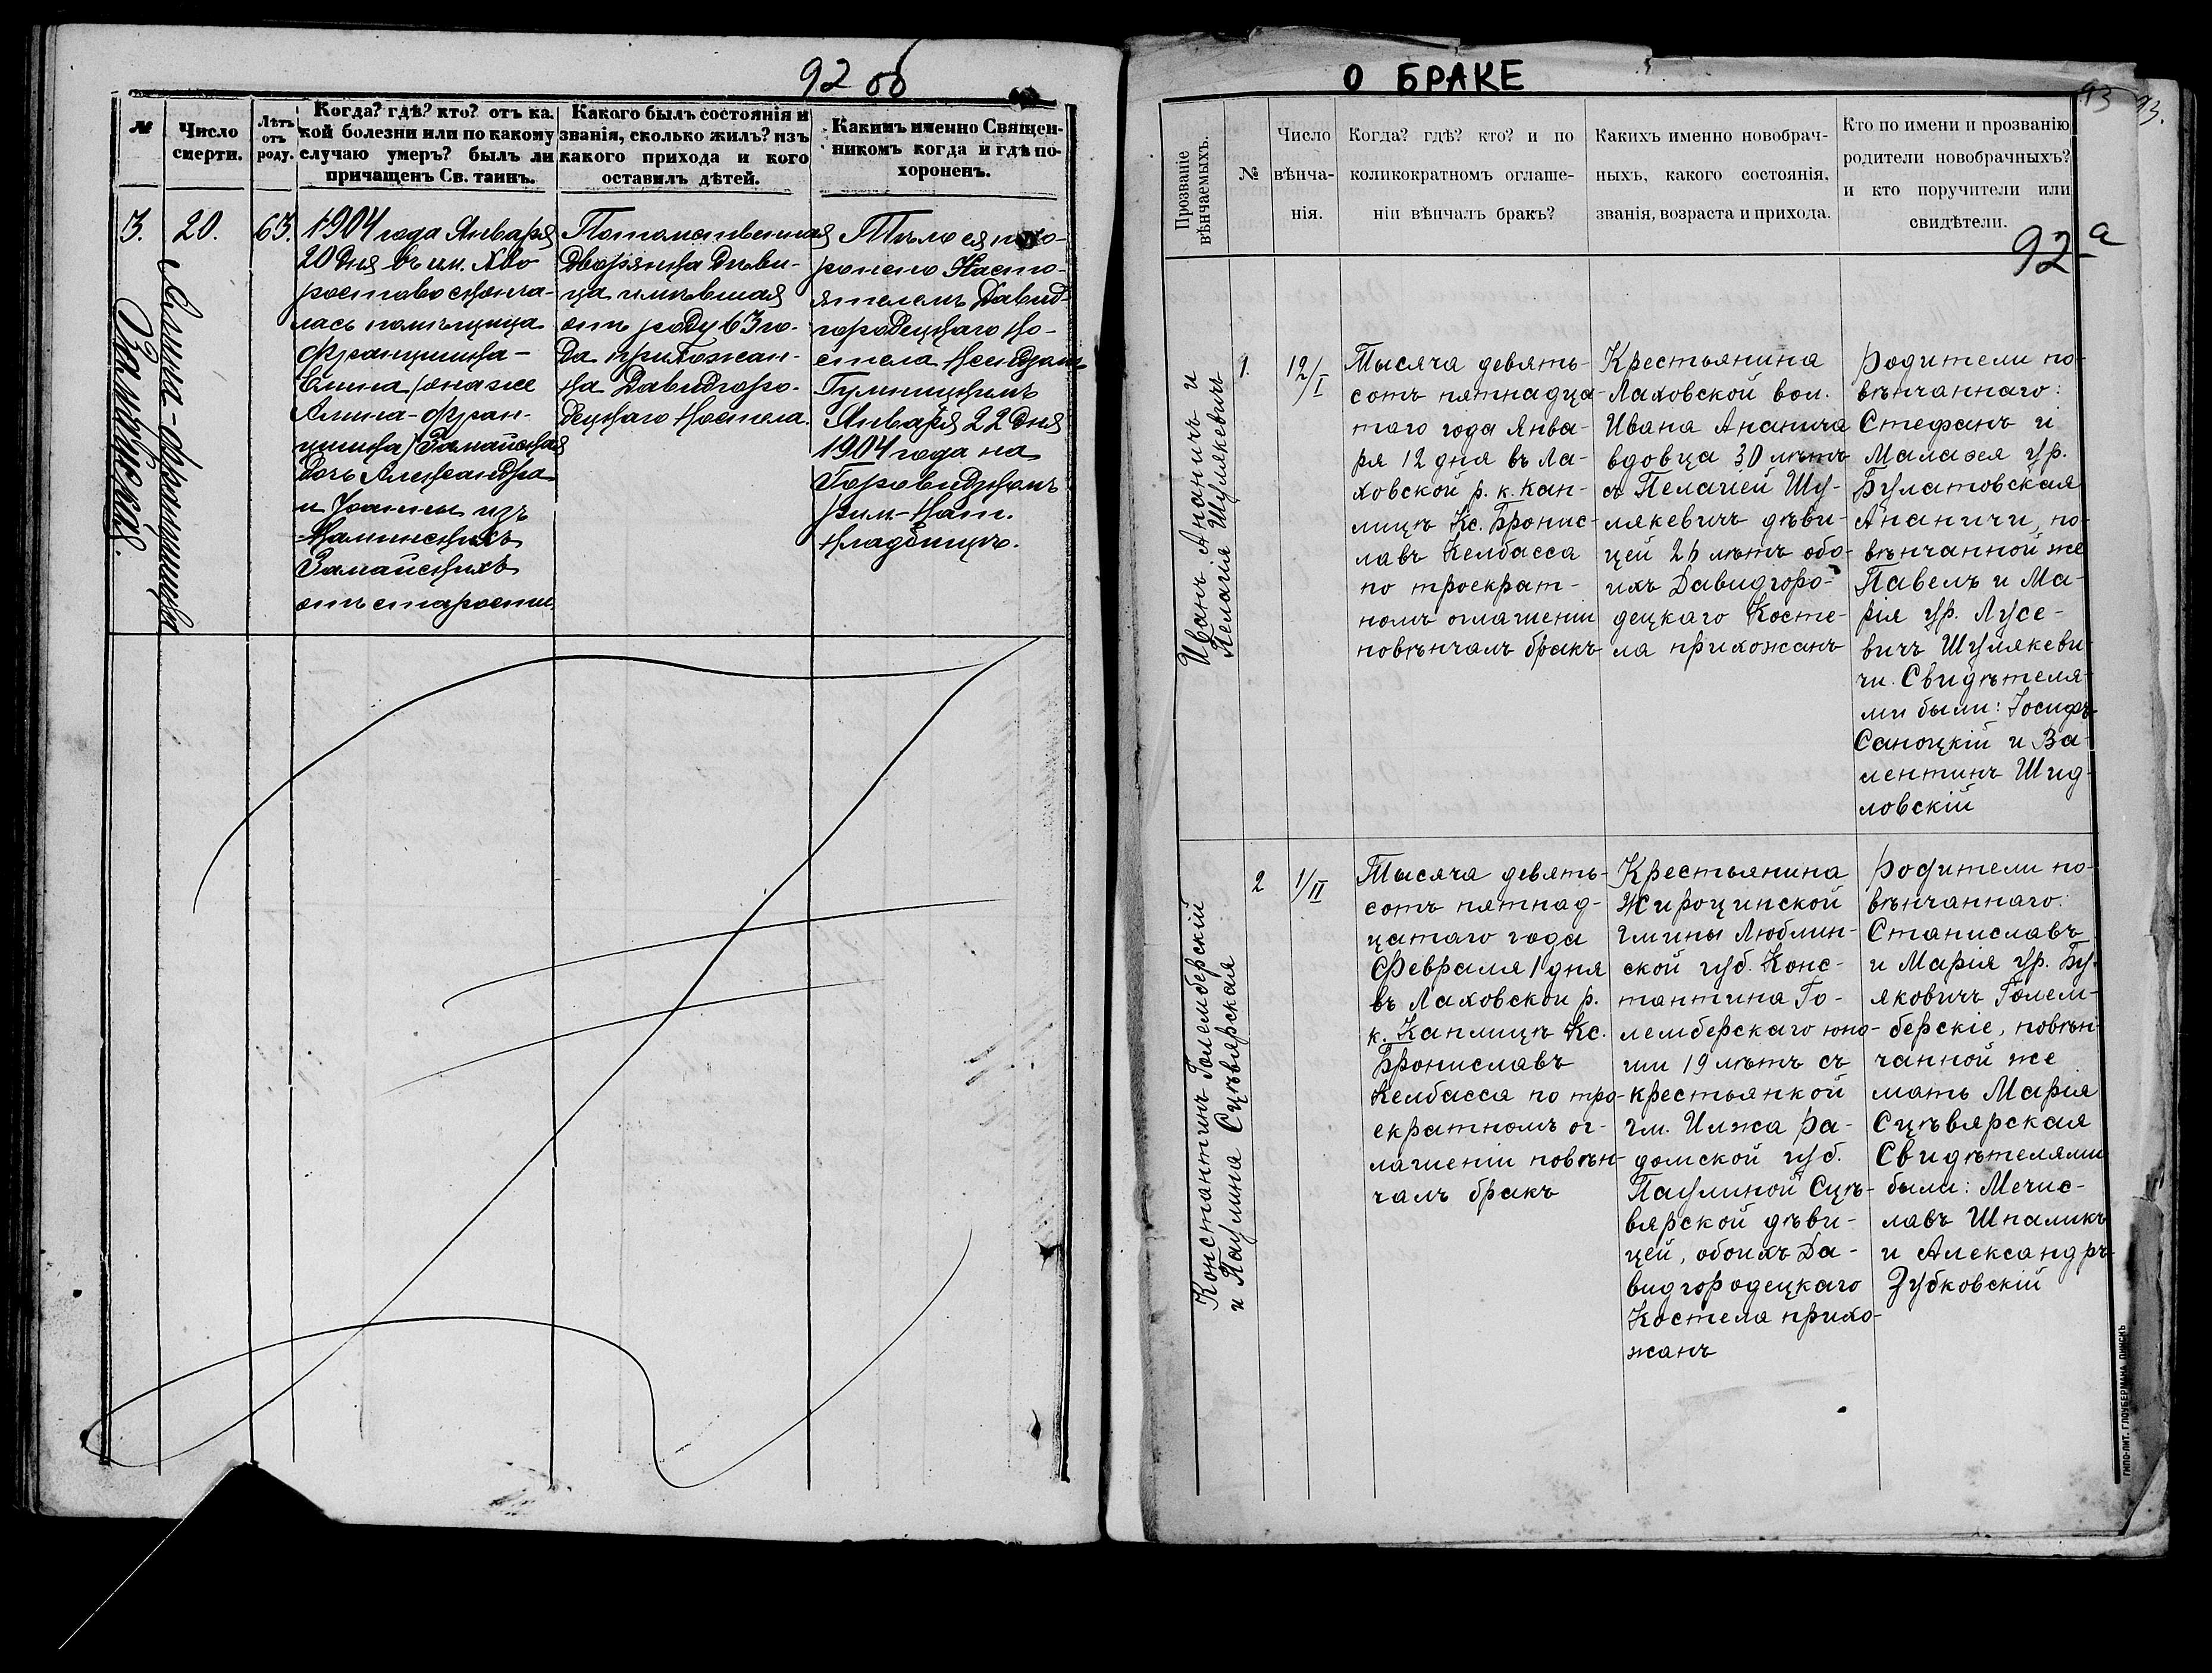 92 об
№
Число
смерти.
Лѣтъ
отъ
роду.
Когда? гдѣ? кто? отъ ка-
кой болезни или по какому
случаю умеръ? былъ ли
причащенъ Св. таинъ.
Какого былъ состоянія и
званія, сколько жилъ? изъ
какого прихода и кого
оставилъ дѣтей.
Какимъ именно Священ-
никомъ когда и гдѣ по-
хороненъ.
3.
20.
63.
1904 года Января
20 дня въ им. Хво
ростово сконча-
лась помѣщица
Францишка-
Елина /она же
Алина-Фран-
цишка/ Замайская
дочь Александра
и Іоанны изъ
Каминскихъ
Замайскихъ
отъ старости.
Потомственная
дворянка дѣви-
ца имѣвшая
отъ роду 63 го-
да прихожан-
ка Давидгоро-
децкаго Костела.
Тѣло ея похо-
ронено Насто-
ятелемъ Давид-
городецкаго Ко-
стела Ксендзомъ
Гумницкимъ
Января 22 дня
1904 года на
рим.-кат.
кладбищѣ.
Алина-Францишка
Замайская.
О БРАКЕ
93 93.
Прозваніе
вѣнчаемыхъ.
№
Число
вѣнча-
нія.
Когда? гдѣ? кто? и по
коликократномъ оглаше-
ніи вѣнчалъ бракъ?
Какихъ именно новобрач-
ныхъ, какого состоянія,
званія, возраста и прихода.
Кто по имени и прозванію
родители новобрачныхъ?
и кто поручители или
свидѣтели.
92 а
Иванъ Ананичъ и
Пелагія Шулякевичъ
1.
12/I
Тысяча девять-
сотъ пятнадца-
таго года Янва-
ря 12 дня въ Ла-
ховской р. к. Кап-
лицѣ Кс. Бронис-
лавъ Келбасса
по троекрат-
номъ оглашеніи
повѣнчалъ бракъ
Крестьянина
Лаховской вол.
Ивана Ананича
вдовца 30 лѣтъ
съ Пелагіей Шу-
лякевичъ дѣви-
цей 26 лѣтъ обо-
ихъ Давидгоро-
децкаго Косте-
ла прихожанъ
Родители по-
вѣнчаннаго:
Стефанъ и
Малахея ур.
Булатовская
Ананичи, по-
вѣнчанной же
Павелъ и Ма-
рія ур. Лусе-
вичъ Шулякеви-
чи. Свидѣтеля-
ми были: Іосифъ
Саноцкій и Ва-
лентинъ Шид-
ловскій
Константинъ Голембѣрскій
и Паулина Сцѣвярская
2
1/II
Тысяча девять-
сотъ пятнад-
цатаго года
Февраля 1 дня
въ Лаховской р.
к. Каплицѣ Кс.
Брониславъ
Келбасса по тро-
екратномъ ог-
лашеніи повѣн-
чалъ бракъ
Крестьянина
Жироцинской
гмины Люблин-
ской губ. Конс-
тантина Го-
лемберскаго юно-
ши 19 лѣтъ съ
крестьянкой
гм. Илжа Ра-
домской губ.
Паулиной Сцѣ-
вярской дѣви-
цей, обоихъ Да-
видгородецкаго
Костела прихо-
жанъ
Родители по-
вѣнчаннаго:
Станиславъ
и Марія ур. Бу-
яковичъ Голем-
берскіе, повѣн-
чанной же
мать Марія
Сцѣвярская
Свидѣтелями
были: Мечис-
лавъ Шпаликъ
и Александръ
Зубковскій
ТИПО-ЛИТ. ГЛОУБЕРМАНА ПИНСКЪ